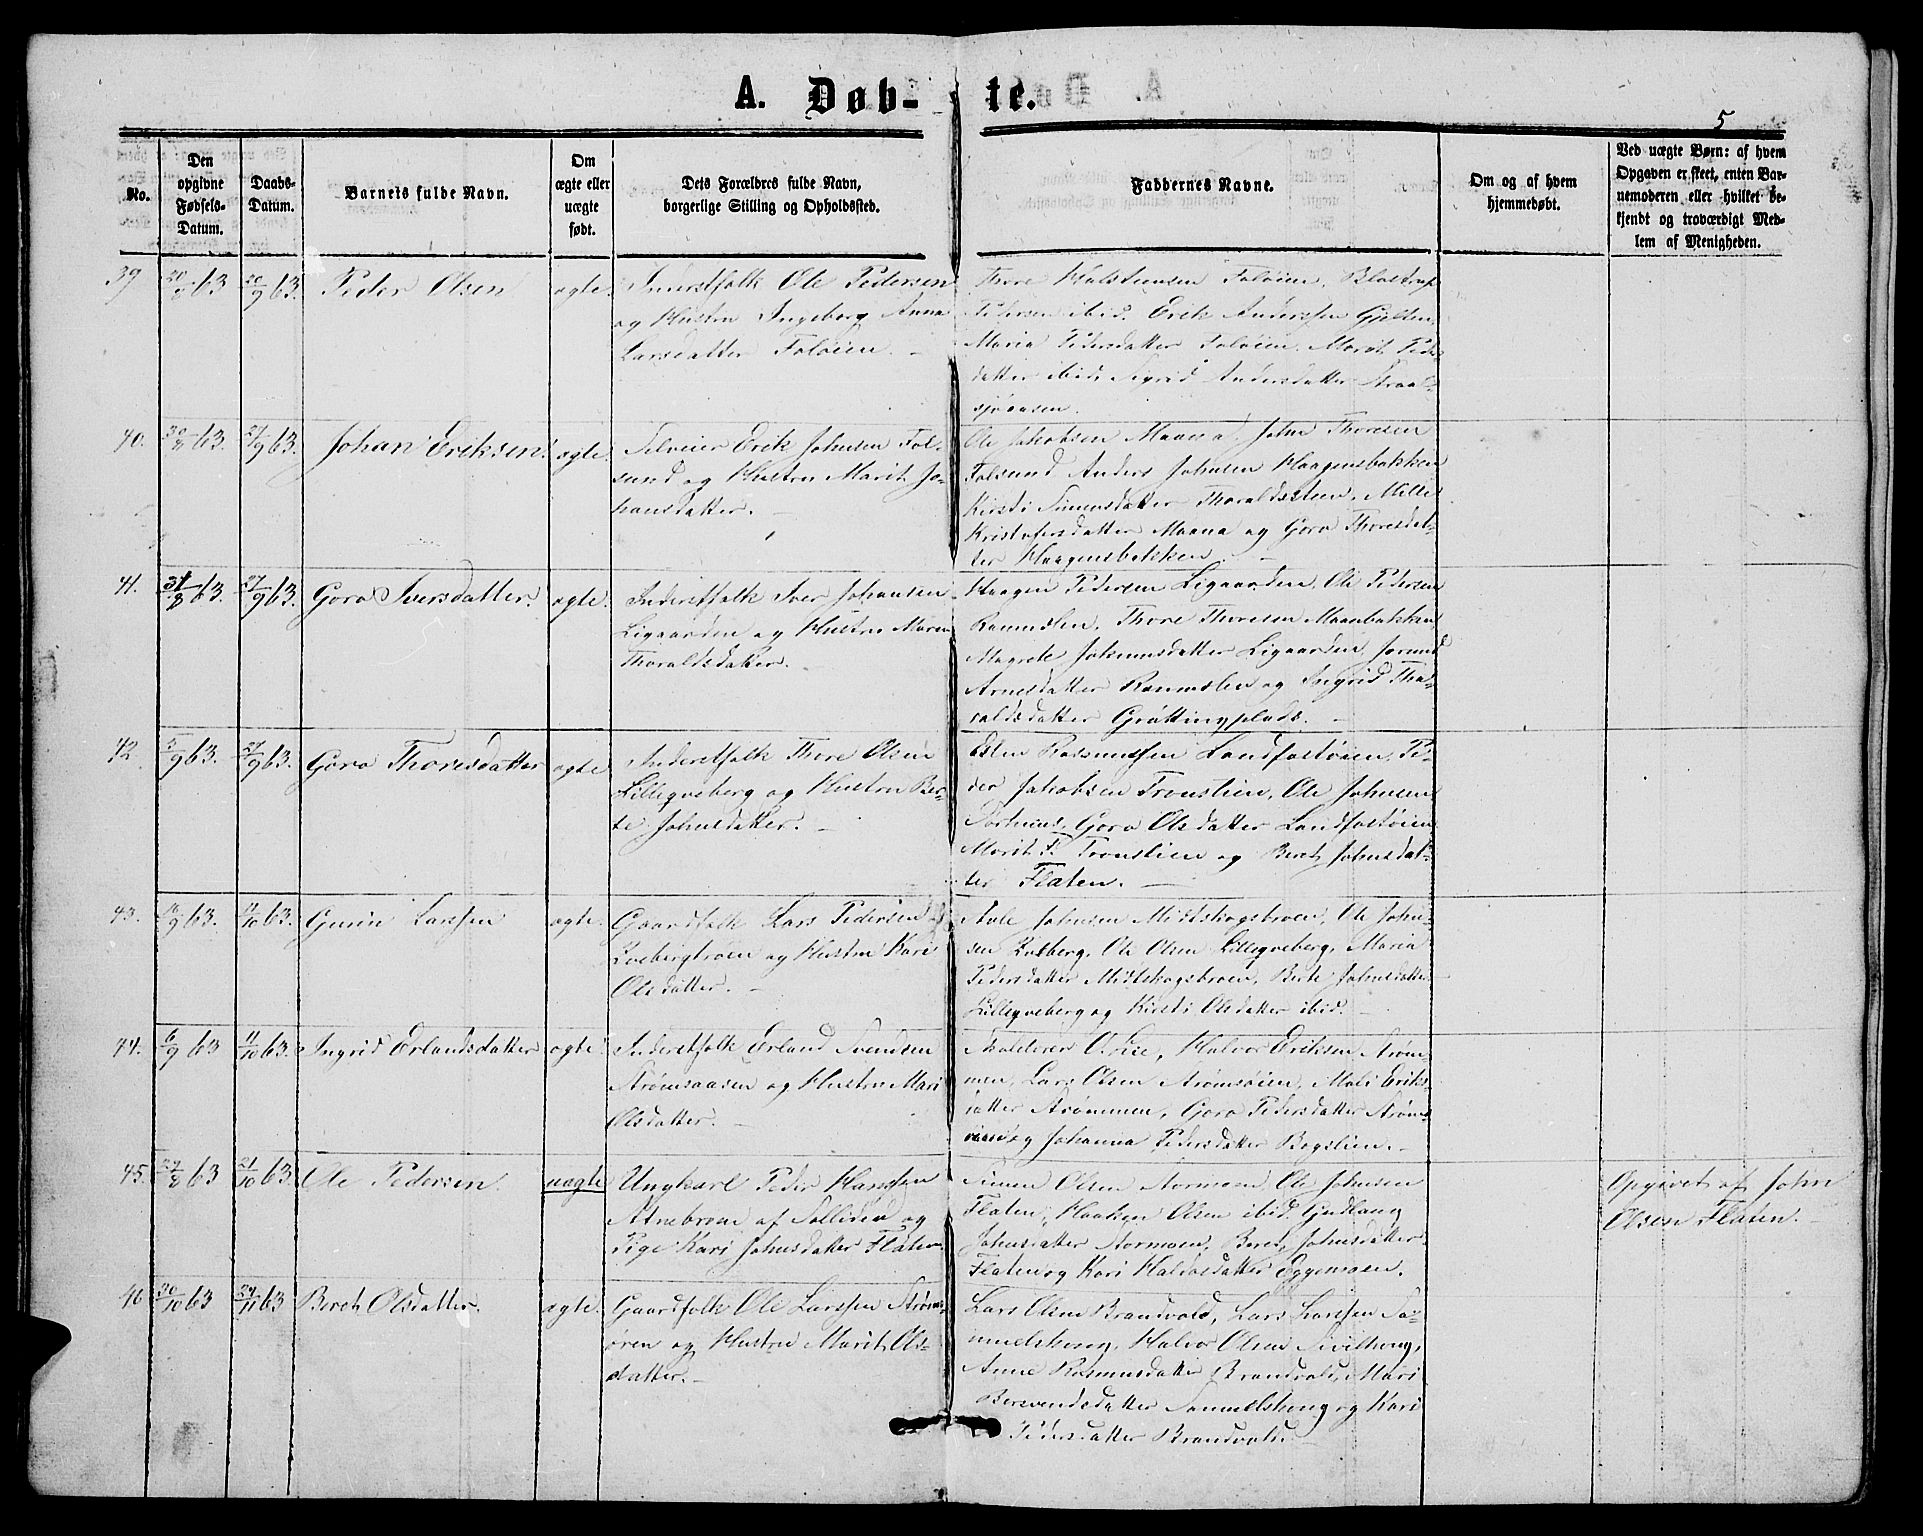 A. Døb-te.
5
No.
Den opgivne Fødsels-Datum.
Daabs-Datum.
Barnets fulde Navn.
Om ægte eller uægte født.
Dets Forældres fulde Navn, borgerlige Stilling og Opholdssted.
Faddernes Navne.
Om og af hvem hjemmedøbt.
Ved uægte Børn: af hvem Opgaven er skeet, enten Barnemoderen eller hvilket bekjendt og troværdigt Medlem af Menigheden.
39 20/8 63 20/9 63. Peder Olsen ægte.
Inderstfolk Ole Pedersen
og Hustru Ingeborg Anna
Larsdatter Foløien. -
Thore Halsteensen Foløien,
Pedersen ibid. Erik Anderssen Gjelten,
Maria Pedersdatter Foløien. Marit Peders
datter ibid, Sigrid Andersdatter
40. 30/8 63. 27/9 63. Johan Eriksen. ægte.
Selveier Erik Johnsen Fol-
sund og Hustru Marit Jo-
hansdatter. -
Ole Jakobsen Maana, John Thoresen
Folsund Anders Johnsen Haagensbakken
Kirsti Simensdatter Thoraldssteen. Mille
Kristofersdatter Maana og Goro Thoresdat-
ter Haagensbakken. -
41. 31/8 63. 27/9 63. Goro Iversdatter. ægte.
Inderstfolk Iver Johansen
Ligaarden og Hustru Maren
Thoraldsdatter.
Haagen Pedersen Ligaarden, Ole Pedersen
Thore Thoresen Maanbakken
Magrete Johannsdatter Ligaarden, Jorund
Arnesdatter og Ingrid Tho-
raldsdatter Grøttingplads. -
42. 5/9 63. 27/9 63. Goro Thoresdatter ægte
Inderstfolk Thore Olsen
Lilleqveberg og Hustru Ber-
te Johnsdatter. -
Esten Rasmussen Landfastøien, Pe-
der Jakobsen Tronslien, Ole Johnsen
Goro Olsdatter Landfastøien
Marit P. Tronslien og Beret Johnsdat-
ter Flaten. -
43. 16/9 63. 11/10 63. Gunin Larssen ægte.
Gaardfolk Lars Pedersen
Kvebergtroen og Hustru Kari
Olsdatter. -
Johnsen Midtskogsbroen, Ole John-
sen Kveberg, Ole Olsen Lilleqveberg, Maria
Pedersdatter Midtskogsbroen, Berte Johnsdatter
Lilleqveberg og Kirsti Olsdatter ibid. -
44. 6/9 63 11/10 63. Ingrid Erlandsdatter ægte.
Inderstfolk Erland Svendsen
Strømsaasen og Hustru Mari
Olsdatter. -
Skolelærer O. Lie, Halvor Eriksen Strøm-
men, Lars Olsen Strømsøien, Mali Eriks-
datter Strømmen, Goro Pedersdatter Strøms
øien og Johanna Pedersdatter Bogslien. -
45. 27/8 63 21/10 63. Ole Pedersen. uægte
Ungkarl Peder Hanssen
Atnebroen af Solliden og
Pige Kari Johnsdatter Flaten.
Simen Olsen Stormoen, Ole Johnsen
Flaten, Haaken Olsen ibid. Gudlaug
Johnsdatter Stormoen, Beret Johnsdatter
Flaten og Kari Haldosdatter Eggemoen.
Opgivet af John
Olsen Flaten. -
46 30/10 63 29/11 63 Beret Olsdatter. ægte.
Gaardfolk Ole Larssen Strøms-
øren og Hustru Marit Ols-
datter. -
Lars Olsen Brandvold, Lars Larssen Sa-
muelshoug, Halvor Olsen Sivilhoug,
Anne Rasmusdatter Brandvold, Mari
Bersvendsdatter Samuelshoug og Kari
Pedersdatter Brandvold. -